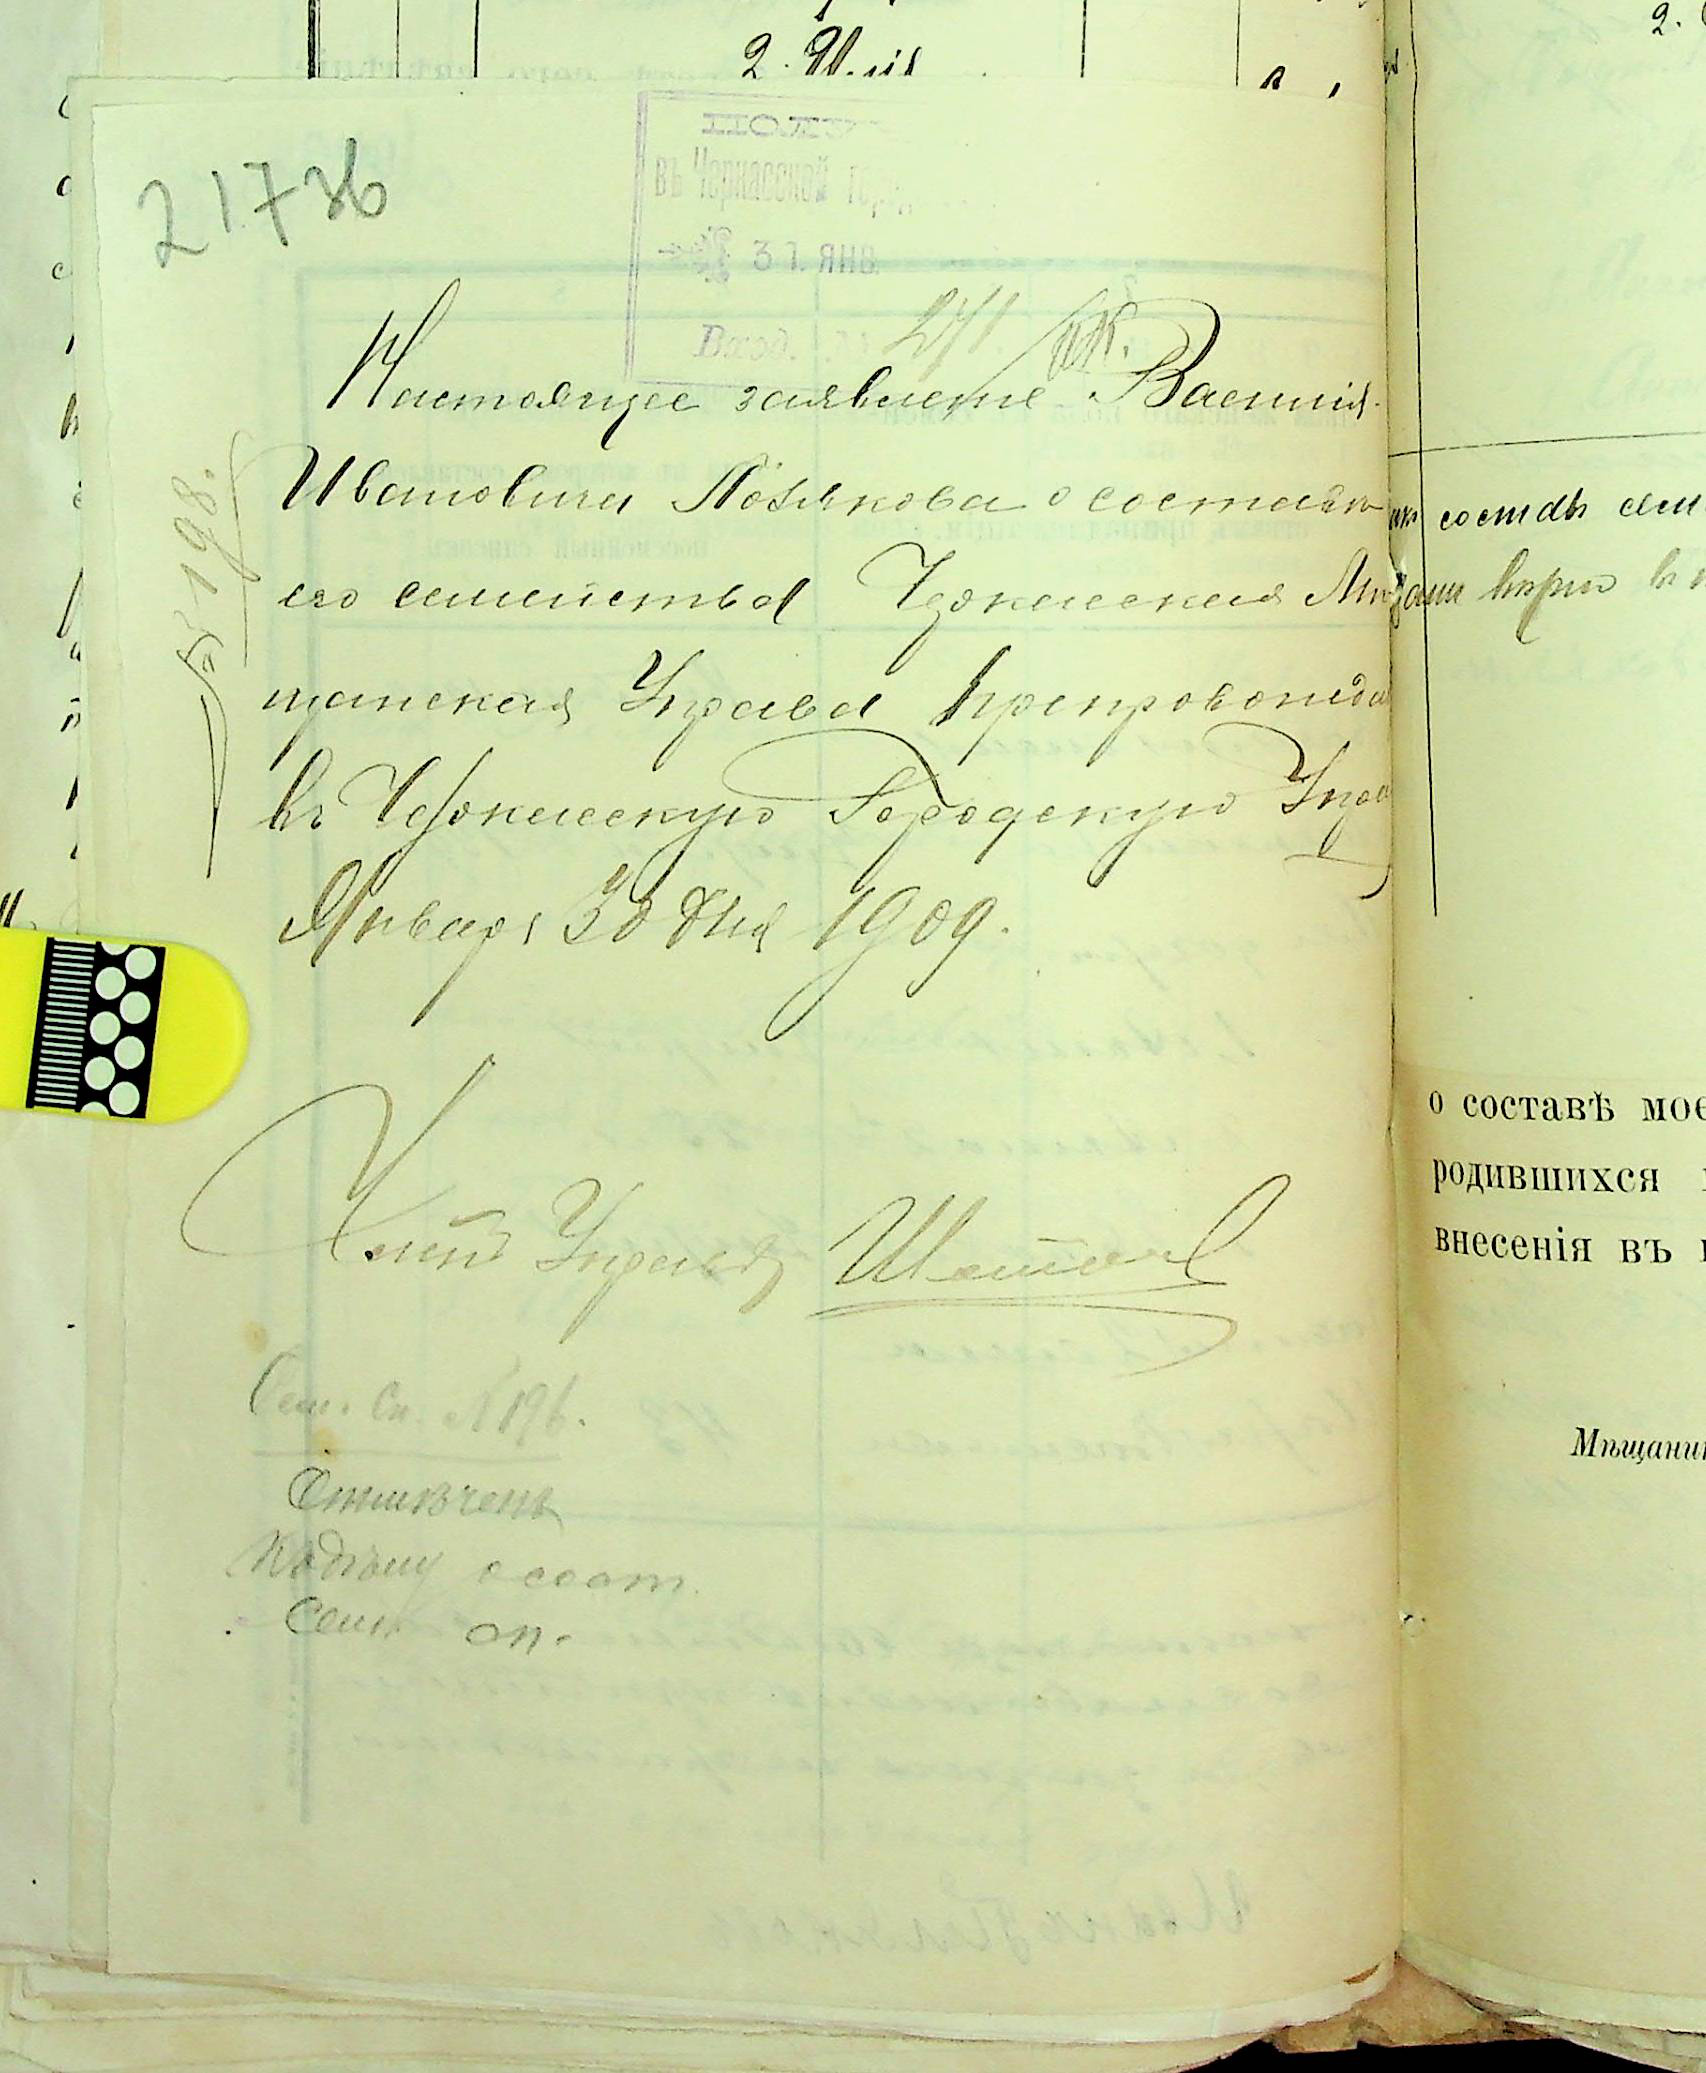 2. Юлія
217 зв
ПОЛУ
въ Черкасской Гор
31. ЯНВ.
Вход. 271.
№ 198.
Настоящее заявленіе Василія
Ивановича Полякова о составѣ
его семейства Черкасская Мѣ
щанская Управа препровожда
въ Черкасскую Городскую Упра
Января 30 дня 1909.
Членъ Управы
Сем. Сп. № 196.
Отмѣченъ
о сост.
Сем. сп.
2.
составъ сем
о составѣ мое
родившихся
внесенія въ
Мѣщанин